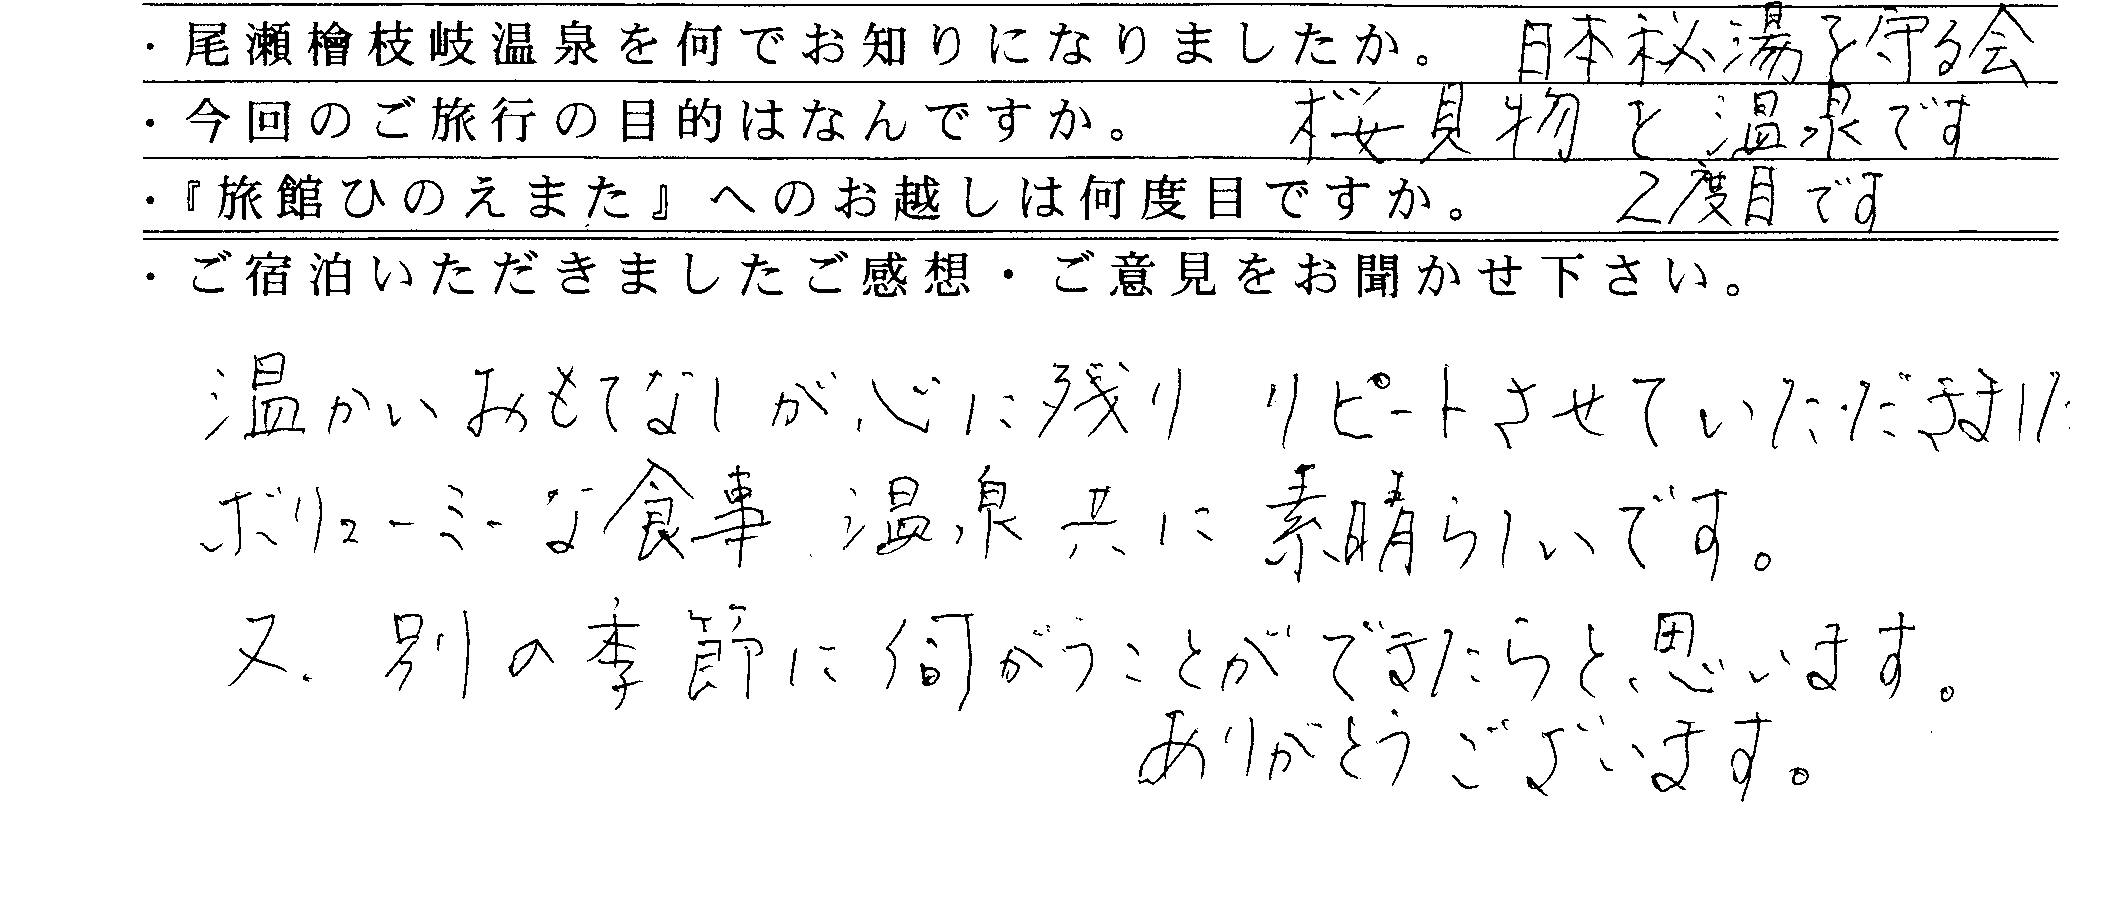 ・尾瀬檜枝岐温泉を何でお知りになりましたか。 日本秘湯を守る会
・今回のご旅行の目的はなんですか。 桜見物と温泉です
・『旅館ひのえまた』へのお越しは何度目ですか。 2度目です
・ご宿泊いただきましたご感想・ご意見をお聞かせ下さい。
温かいおもてなしが心に残り リピートさせていただきました
ボリューミーな食事、温泉共に素晴らしいです。
又、別の季節に伺がうことができたらと思います。
ありがとうございます。